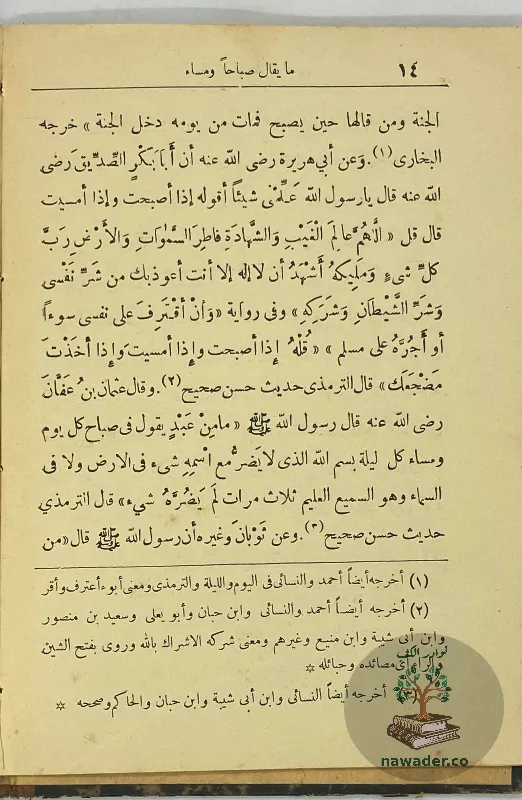 ١٤ ما يقال صباحاً ومساء
الجنة ومن قالها حين يصبح فمات من يومه دخل الجنة » خرجه
البخارى (١). وَعن أبي هريرة رضى الله عنه أن أَبَا بَكْرٍ الصِّدِّيق رَضى
الله عنه قال يا رسول الله عَلِّمْنى شيئاً أقوله إذا أصبحت وإذا أمسيت
قال قل « اللَّهُمَّ عالِمَ الْغَيْبِ وَالشَّهَادَةِ فاطِرَ السَّمٰوَاتِ وَالأَرْضِ رَبَّ
كلِّ شىءٍ وَمَلِيكهُ أَشْهَدُ أن لا إله إلا أنت أعوذ بك من شَرِّ نَفْسى
وَشَرِّ الشَّيْطَانِ وَشَرَكِهِ » وفى رواية « وَأنْ أقْتَرِفَ على نفسى سوءاً
أو أَجُرَّهُ على مسلم » « قُلْهُ إذا أصبحت وإذا أمسيت وَإذا أَخَذْتَ
مَضْجَعَك » قال الترمذى حديث حسن صحيح (٢). وقال عثمان بنُ عَفَّانَ
رضى الله عنه قال رسول الله ﷺ « ما مِنْ عَبْدٍ يقول فى صباح كل يوم
ومساء كل ليلة بسم الله الذى لا يَضرُّ مع اسْمِهِ شىء فى الارض ولا فى
السماء وهو السميع العليم ثلاث مرات لَمْ يَضُرَّهُ شيء » قال الترمذي
حديث حسن صحيح (٣). وعن ثَوْبانَ وغيره أن رسول الله ﷺ قال « من
(١) أخرجه أيضاً أحمد والنسائى فى اليوم والليلة والترمذى ومعنى أبوء أعترف وأقر
(٢) أخرجه أيضاً أحمد والنسائى وابن حبان وأبو يعلى وسعيد بن منصور
وابن أبى شيبة وابن منيع وغيرهم ومعنى شركه الاشراك بالله وروى بفتح الشين
والراء أى مصائده وحبائله *
(٣) أخرجه أيضاً النسائى وابن أبى شيبة وابن حبان والحاكم وصححه *
نوادر الكتب
nawader.co